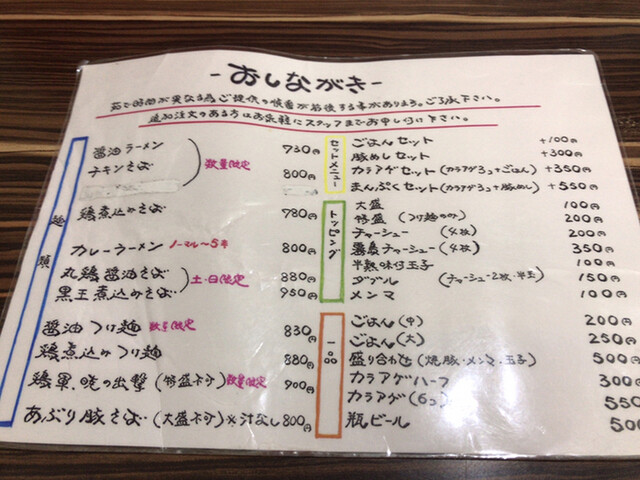 -おしながき-
茹で時間が異なる為ご提供の順番が前後する事があります。ご了承下さい。
追加注文のある方はお気軽にスタッフまでお申し付け下さい。
麺類
醤油ラーメン 730円
チキンそば 800円
数量限定
鶏煮込みそば 780円
カレーラーメン ノーマル～5辛 800円
丸鶏醤油そば 880円
黒王煮込みそば 950円
土・日限定
醤油つけ麺 数量限定 830円
鶏煮込みつけ麺 880円
鶏軍、暁の出撃(特盛不可)数量限定 900円
あぶり豚そば(大盛不可)※汁なし 800円
セットメニュー
ごはんセット +100円
豚めしセット +300円
カラアゲセット(カラアゲ3コ+ごはん) +350円
まんぷくセット(カラアゲ3コ+豚めし) +550円
トッピング
大盛 100円
特盛(つけ麺のみ) 200円
チャーシュー(4枚) 200円
鶏チャーシュー(4枚) 350円
半熟味付玉子 100円
ダブル(チャーシュー2枚・半玉) 150円
メンマ 100円
一品
ごはん(中) 200円
ごはん(大) 250円
盛り合わせ(焼豚・メンマ・玉子) 500円
カラアゲハーフ 300円
カラアゲ(6コ) 550
瓶ビール 500